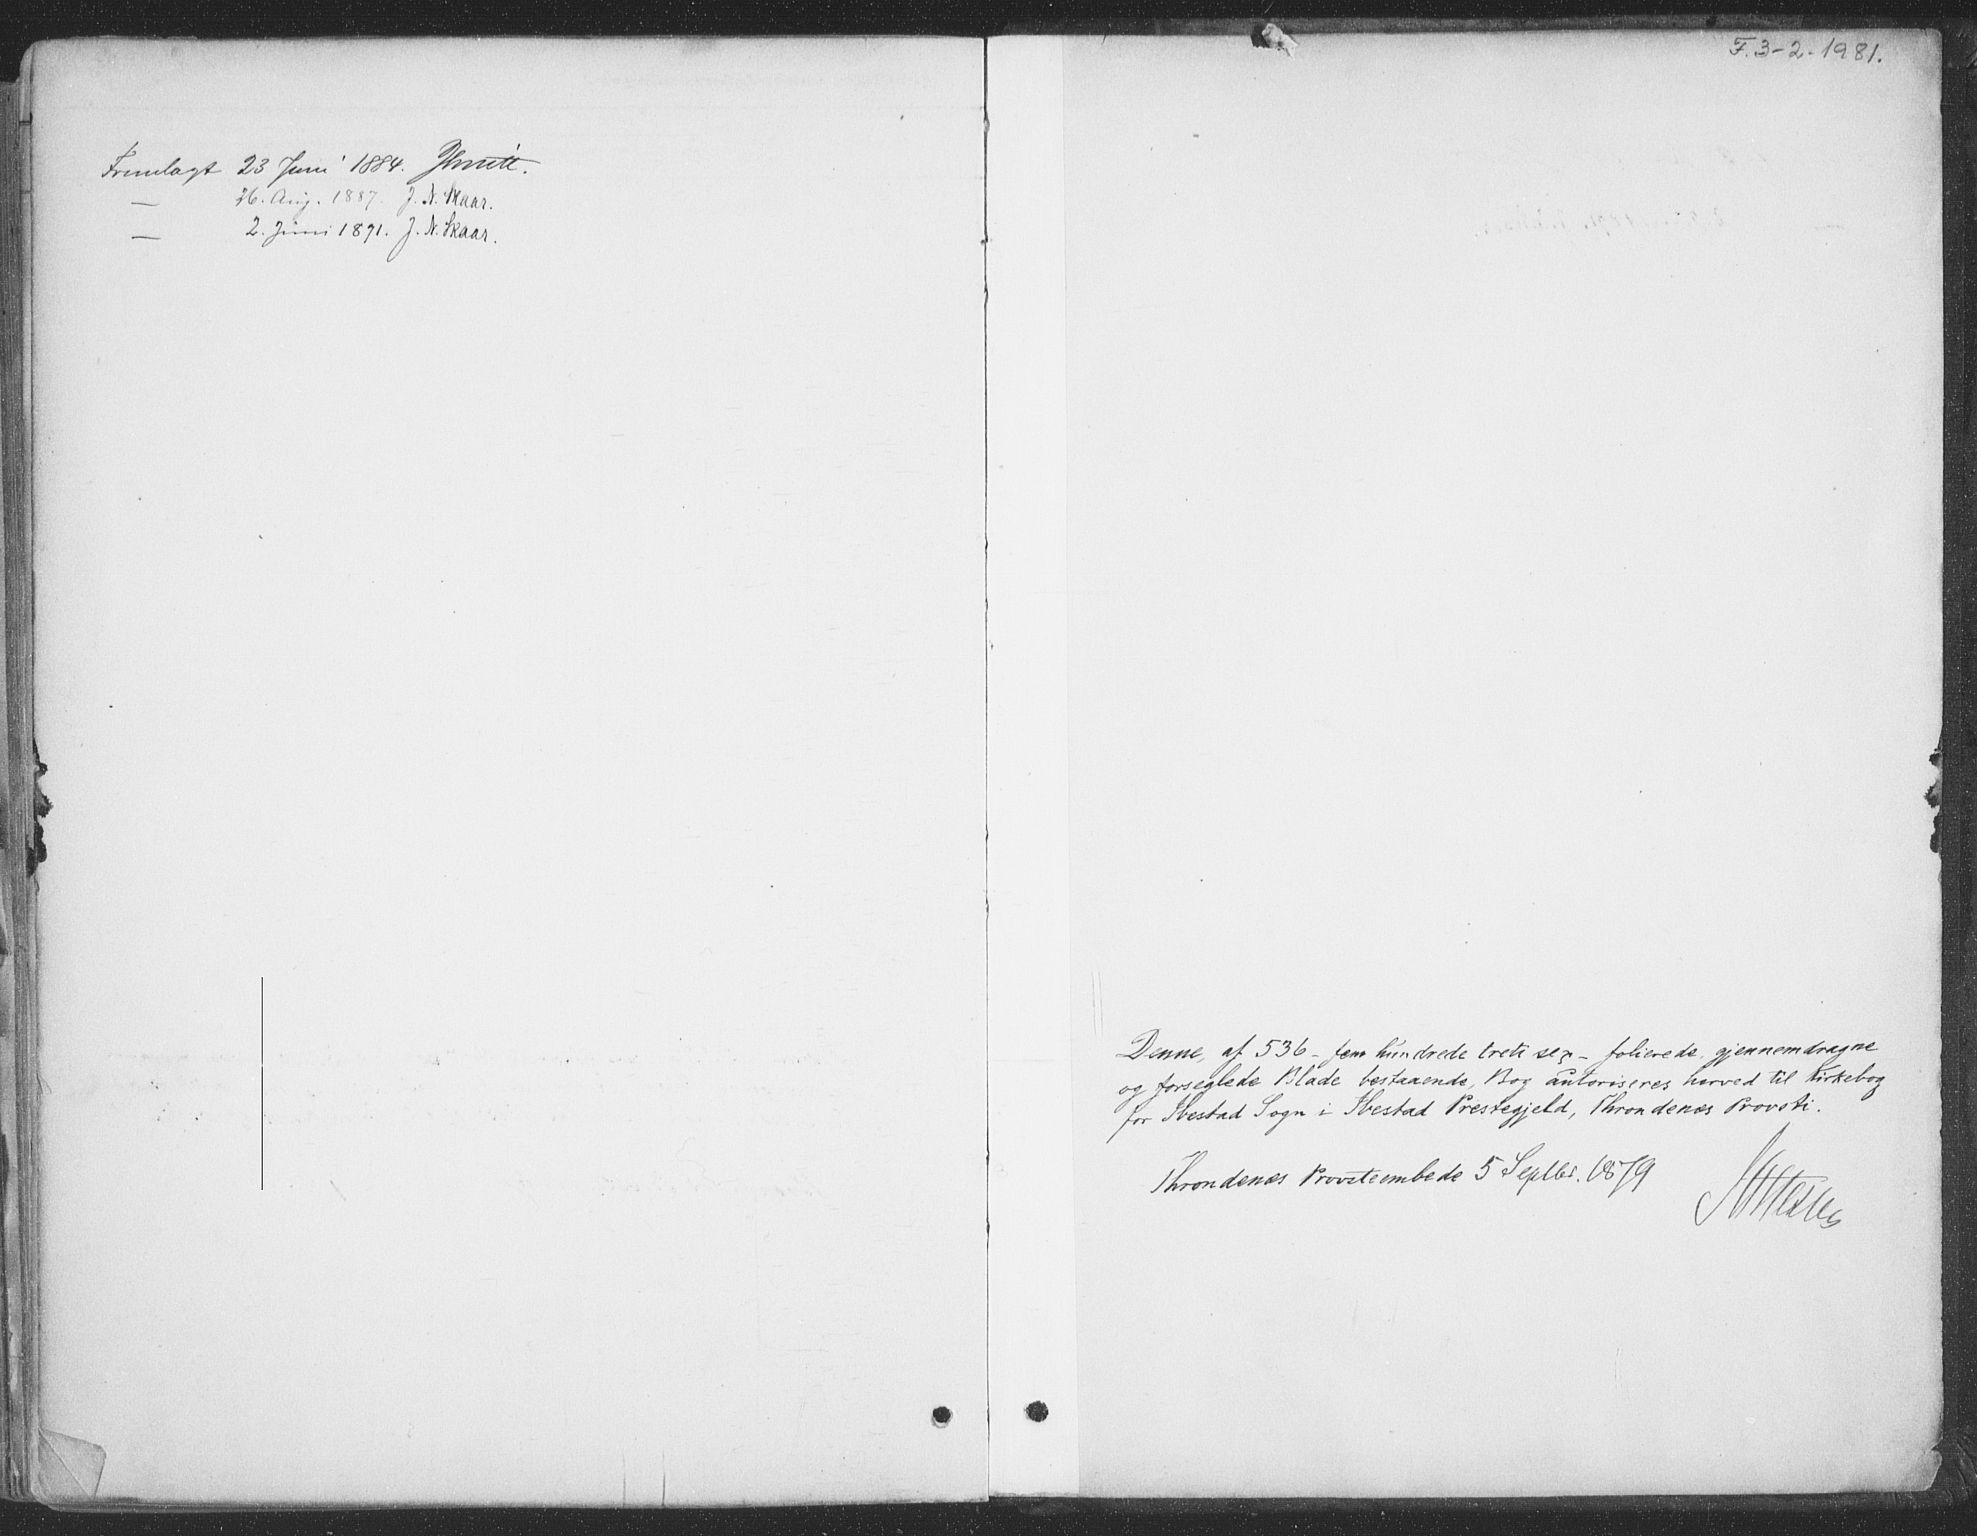 Fremlagt 23 Juni 1884. Smitt.
— 26. Aug. 1887. J. N. Skaar.
— 2. Juni 1891. J. N. Skaar.
F. 3-2-1981.
Denne, af 536 - fem hundrede treti sex - folierede, gjennemdragne
og forseglede Blade bestaaende, Bog autoriseres herved til Kirkebog
for Ibestad Sogn i Ibestad Prestegjeld, Throndenæs Provsti.
Throndenæs Provsteembede 5 Septbr. 1879